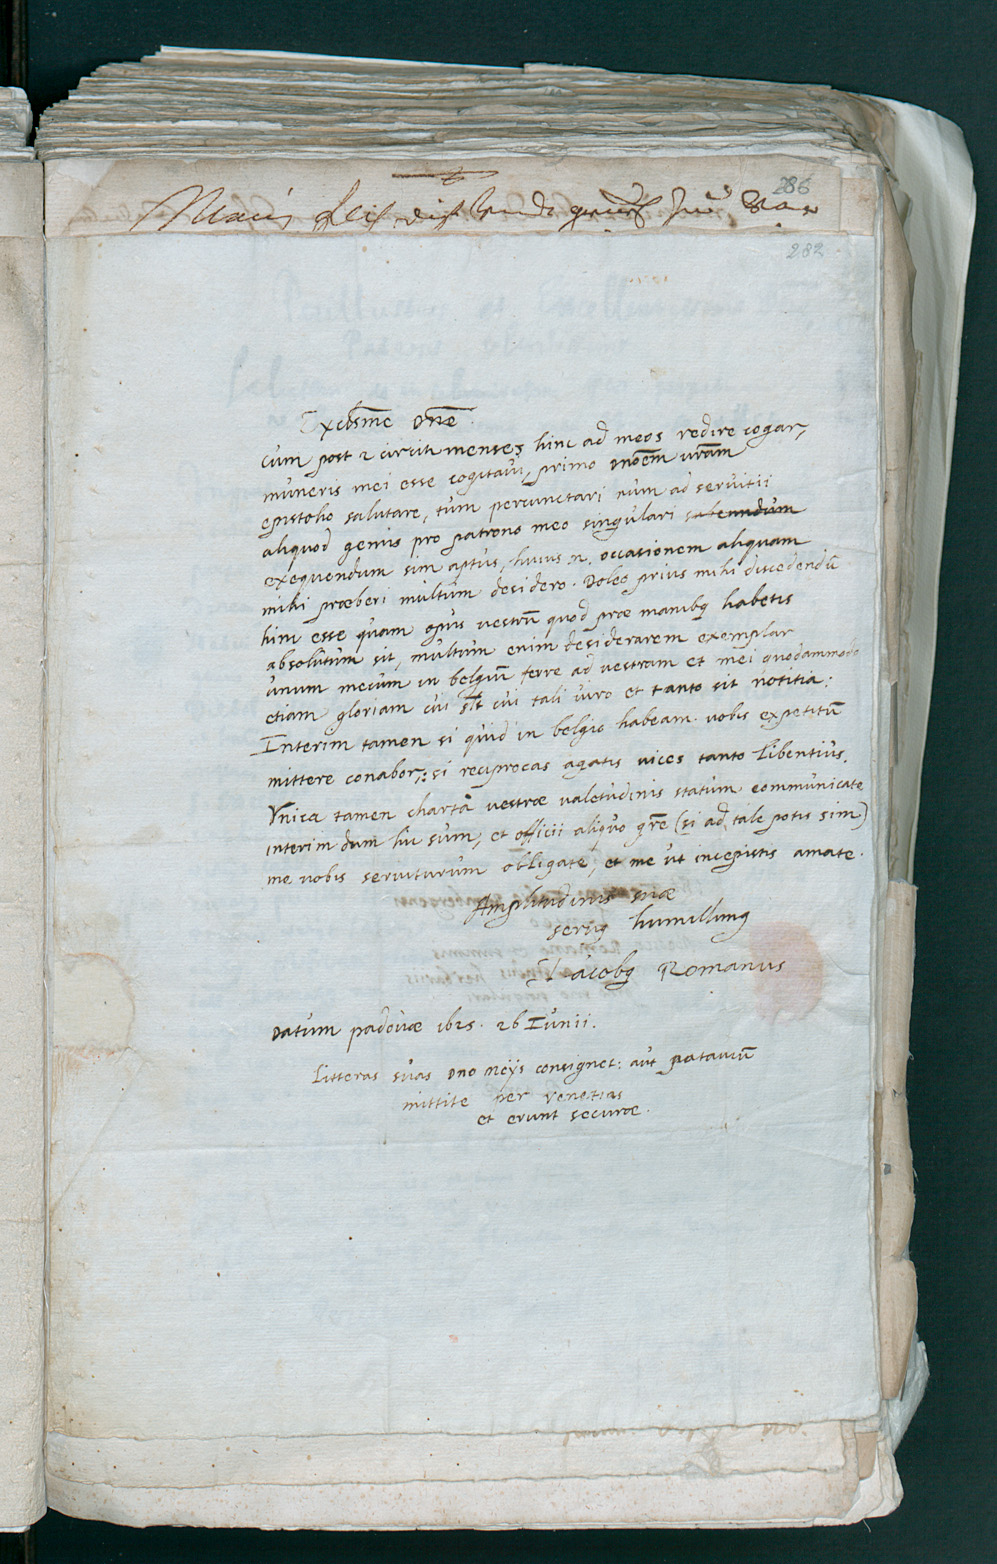 286
282
Excellme Dne
cum post 2 circiter menses hinc ad meos redire cogar,
muneris mei esse cogitavi, primo Dnoem vram
epistolio salutare, tum percunctari num ad servitii
aliquod genus pro patrono meo singulari subeundum
exequendum sim aptus, huius n. occasionem aliquam
mihi præberi multum desidero. Doleo prius mihi discedendũ
hinc esse quam opus vestrũ quod præ manibq habetis
absolutum sit, multum enim desiderarem exemplar
unum mecum in belgiũ ferre ad vestram et mei quodammodo
etiam gloriam cui slt cui tali viro et tanto sit notitia:
Interim tamen si quid in belgio habeam vobis expetitũ
mittere conabor,: si reciprocas agatis vices tanto libentius.
Vnica tamen charta vestræ valetudinis statum communicate
interim dum hic sum, et officii aliquo gre (si ad tale potis sim)
me vobis serviturum obligate, et me ut incepistis amate.
Amplitudinis suæ
servq humillimq
Iacobq Romanus
Datum padovæ 1625. 26 Iunii.
Litteras suas Dno consignet: aut patavium
mittite per venetias
et erunt securæ.